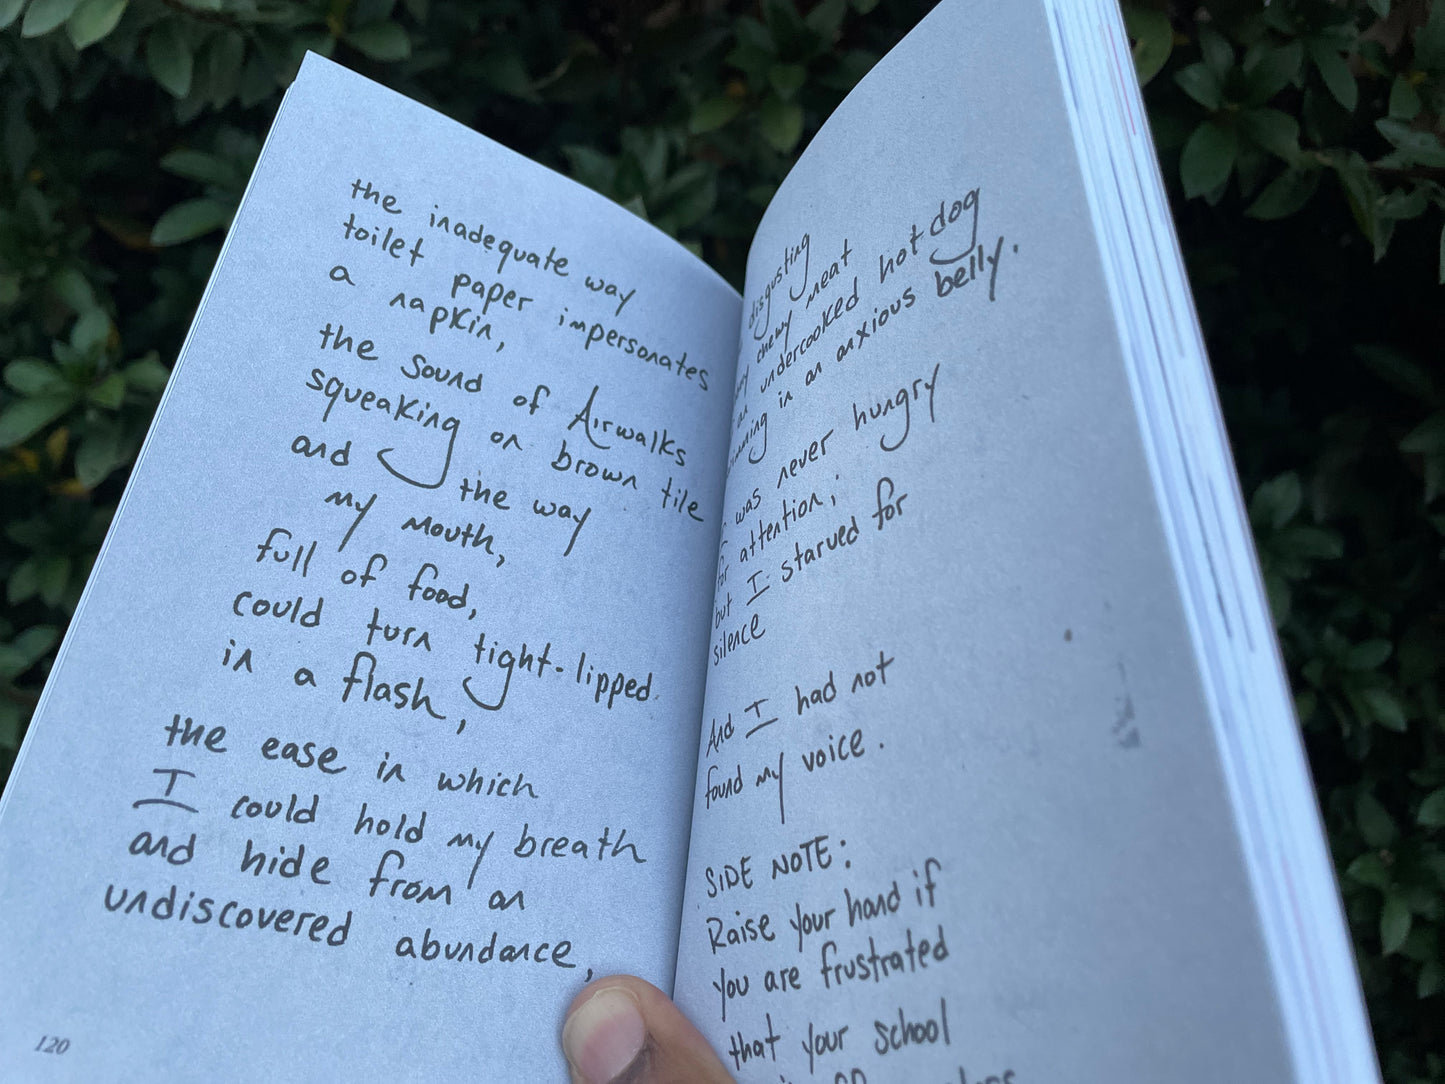 the inadequate way
toilet paper impersonates
a napkin,
the sound of Airwalks
squeaking on brown tile
and the way
my mouth,
full of food,
could turn tight-lipped.
in a flash,
the ease in which
I could hold my breath
and hide from an
undiscovered abundance,
120
disgusting
chewy meat
undercooked hotdog
in an anxious belly.
I was never hungry
for attention;
but I starved for
silence
And I had not
found my voice.
SIDE NOTE:
Raise your hand if
you are frustrated
that your school